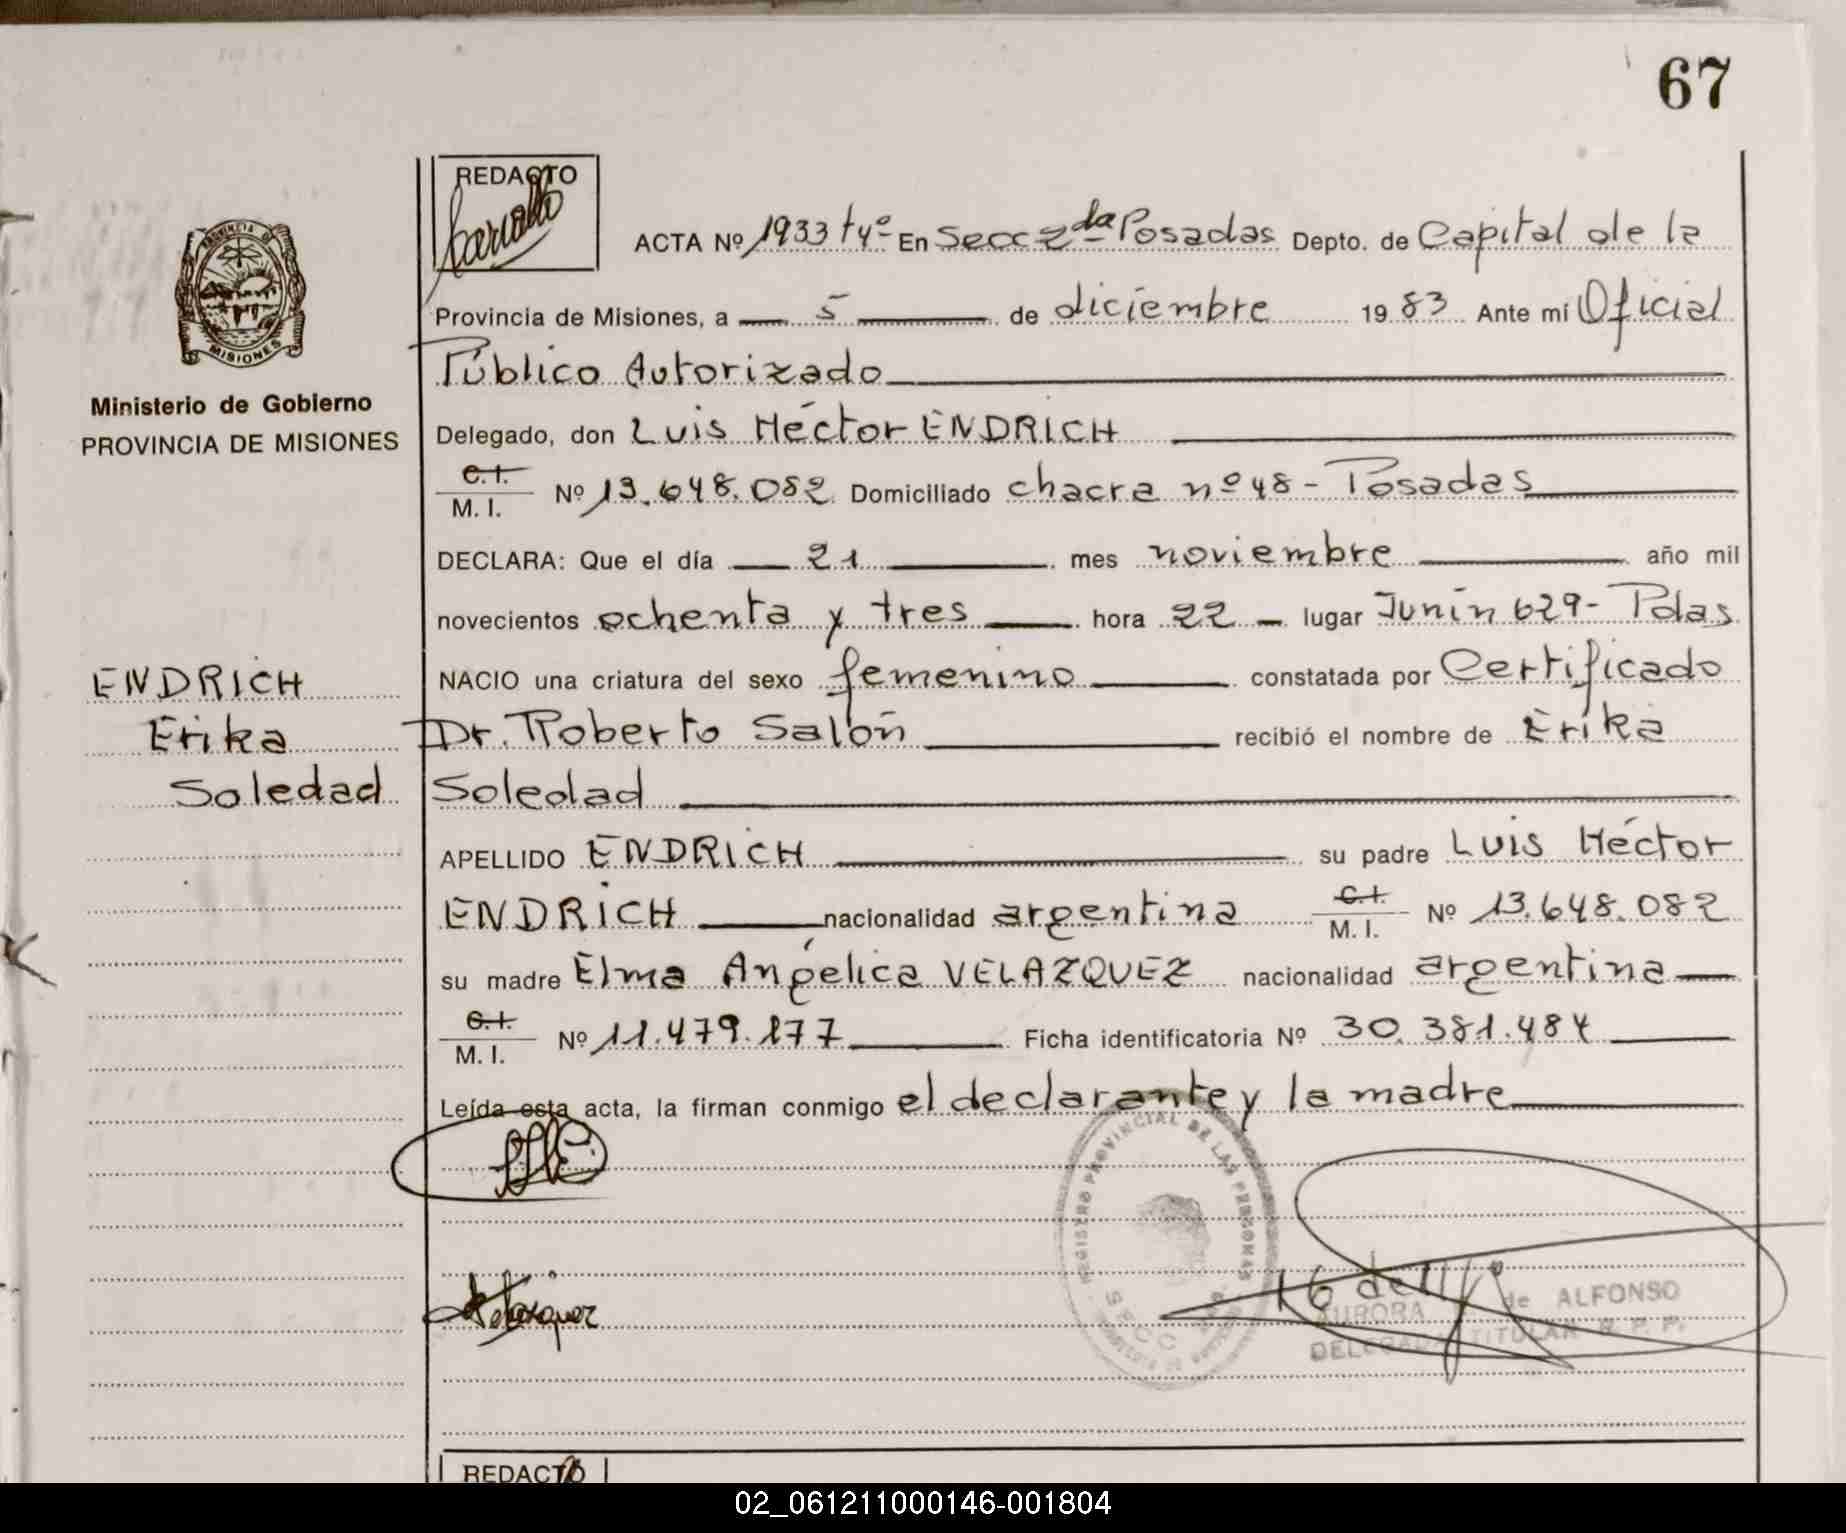 67
REDACTO
Carvallo
ACTA Nº 1933 tº4º En Secc 2da Posadas Depto. de Capital de la
Provincia de Misiones, a 5 de diciembre 1983 Ante mí Oficial
Público Autorizado
Delegado, don Luis Héctor ENDRICH
C.I. M. I. Nº 13.648.082 Domiciliado chacra nº 48 - Posadas
DECLARA: Que el día 21 mes noviembre año mil
novecientos ochenta y tres hora 22 lugar Junín 629 - Pdas
NACIO una criatura del sexo femenino constatada por Certificado
Dr. Roberto Salón recibió el nombre de Erika
Soledad
APELLIDO ENDRICH su padre Luis Héctor
ENDRICH nacionalidad argentina C.I. M. I. Nº 13.648.082
su madre Elma Angélica VELAZQUEZ nacionalidad argentina
C.I. M. I. Nº 11.479.177 Ficha identificatoria Nº 30.381.484
Leída esta acta, la firman conmigo el declarante y la madre
PROVINCIA DE
MISIONES
Ministerio de Gobierno
PROVINCIA DE MISIONES
ENDRICH
Erika
Soledad
Velazquez
REGISTRO PROVINCIAL DE LAS PERSONAS
SECC
AURORA de ALFONSO
DELEGADA TITULAR R. P. P.
REDACTO
02_061211000146-001804